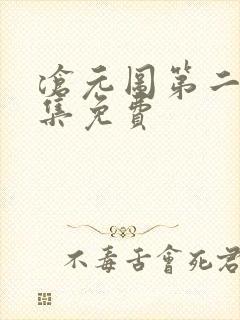 滄元圖第二
集免費
不毒舌會死君